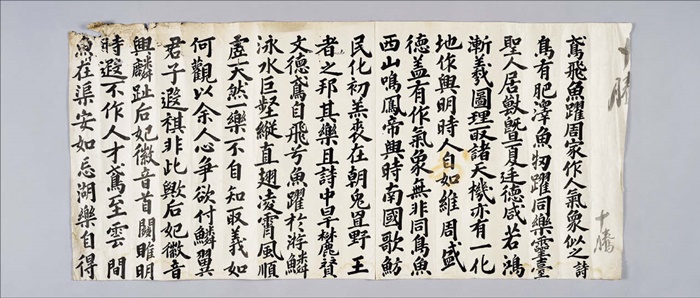 十勝
鳶飛魚躍周家作人氣象似之 詩
鳥有肥澤魚牣躍同樂靈臺
聖人居猷旣夏廷德咸若鴻
漸羲圖理取諸天機亦有一化
地作興明時人自如維周盛
德盖有作氣象無非同鳥魚
西山鳴鳳帝興時南國歌魴
民化初羔裘在朝兔罝野王
者之邦其樂且詩中旱麓賛
文德鳶自飛兮魚躍於游鱗
泳水巨壑縱直翅凌霄風順
虛天然一樂不自知取義如
何觀以余人心爭欲付鱗翼
君子遐祺非此歟后妃徽音
興麟趾后妃徽音首關雎明
時遐不作人才鳶至雲間
魚在渠安如忘湖樂自得